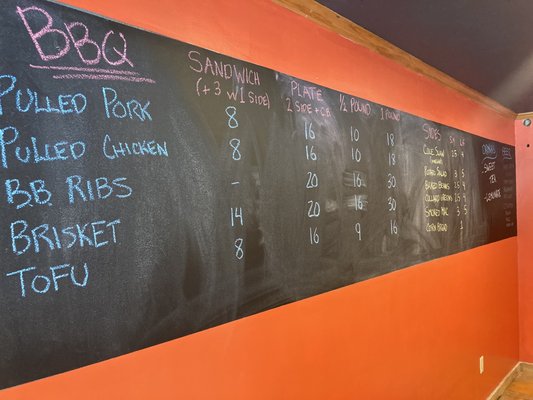 BBQ
SANDWICH PLATE ½ POUND 1 POUND
(+3 W 1 SIDE) 2 SIDE + CB
PULLED PORK 8 16 10 18
PULLED CHICKEN 8 16 10 18
BB RIBS - 20 16 30
BRISKET 14 20 16 30
TOFU 8 16 9 16
SIDES
COLE SLAW
POTATO SALAD 3 5
BAKED BEANS
COLLARD GREENS
SMOKED MAC 3 5
CORN BREAD 1
DRINKS
SWEET
TEA
LEMONADE